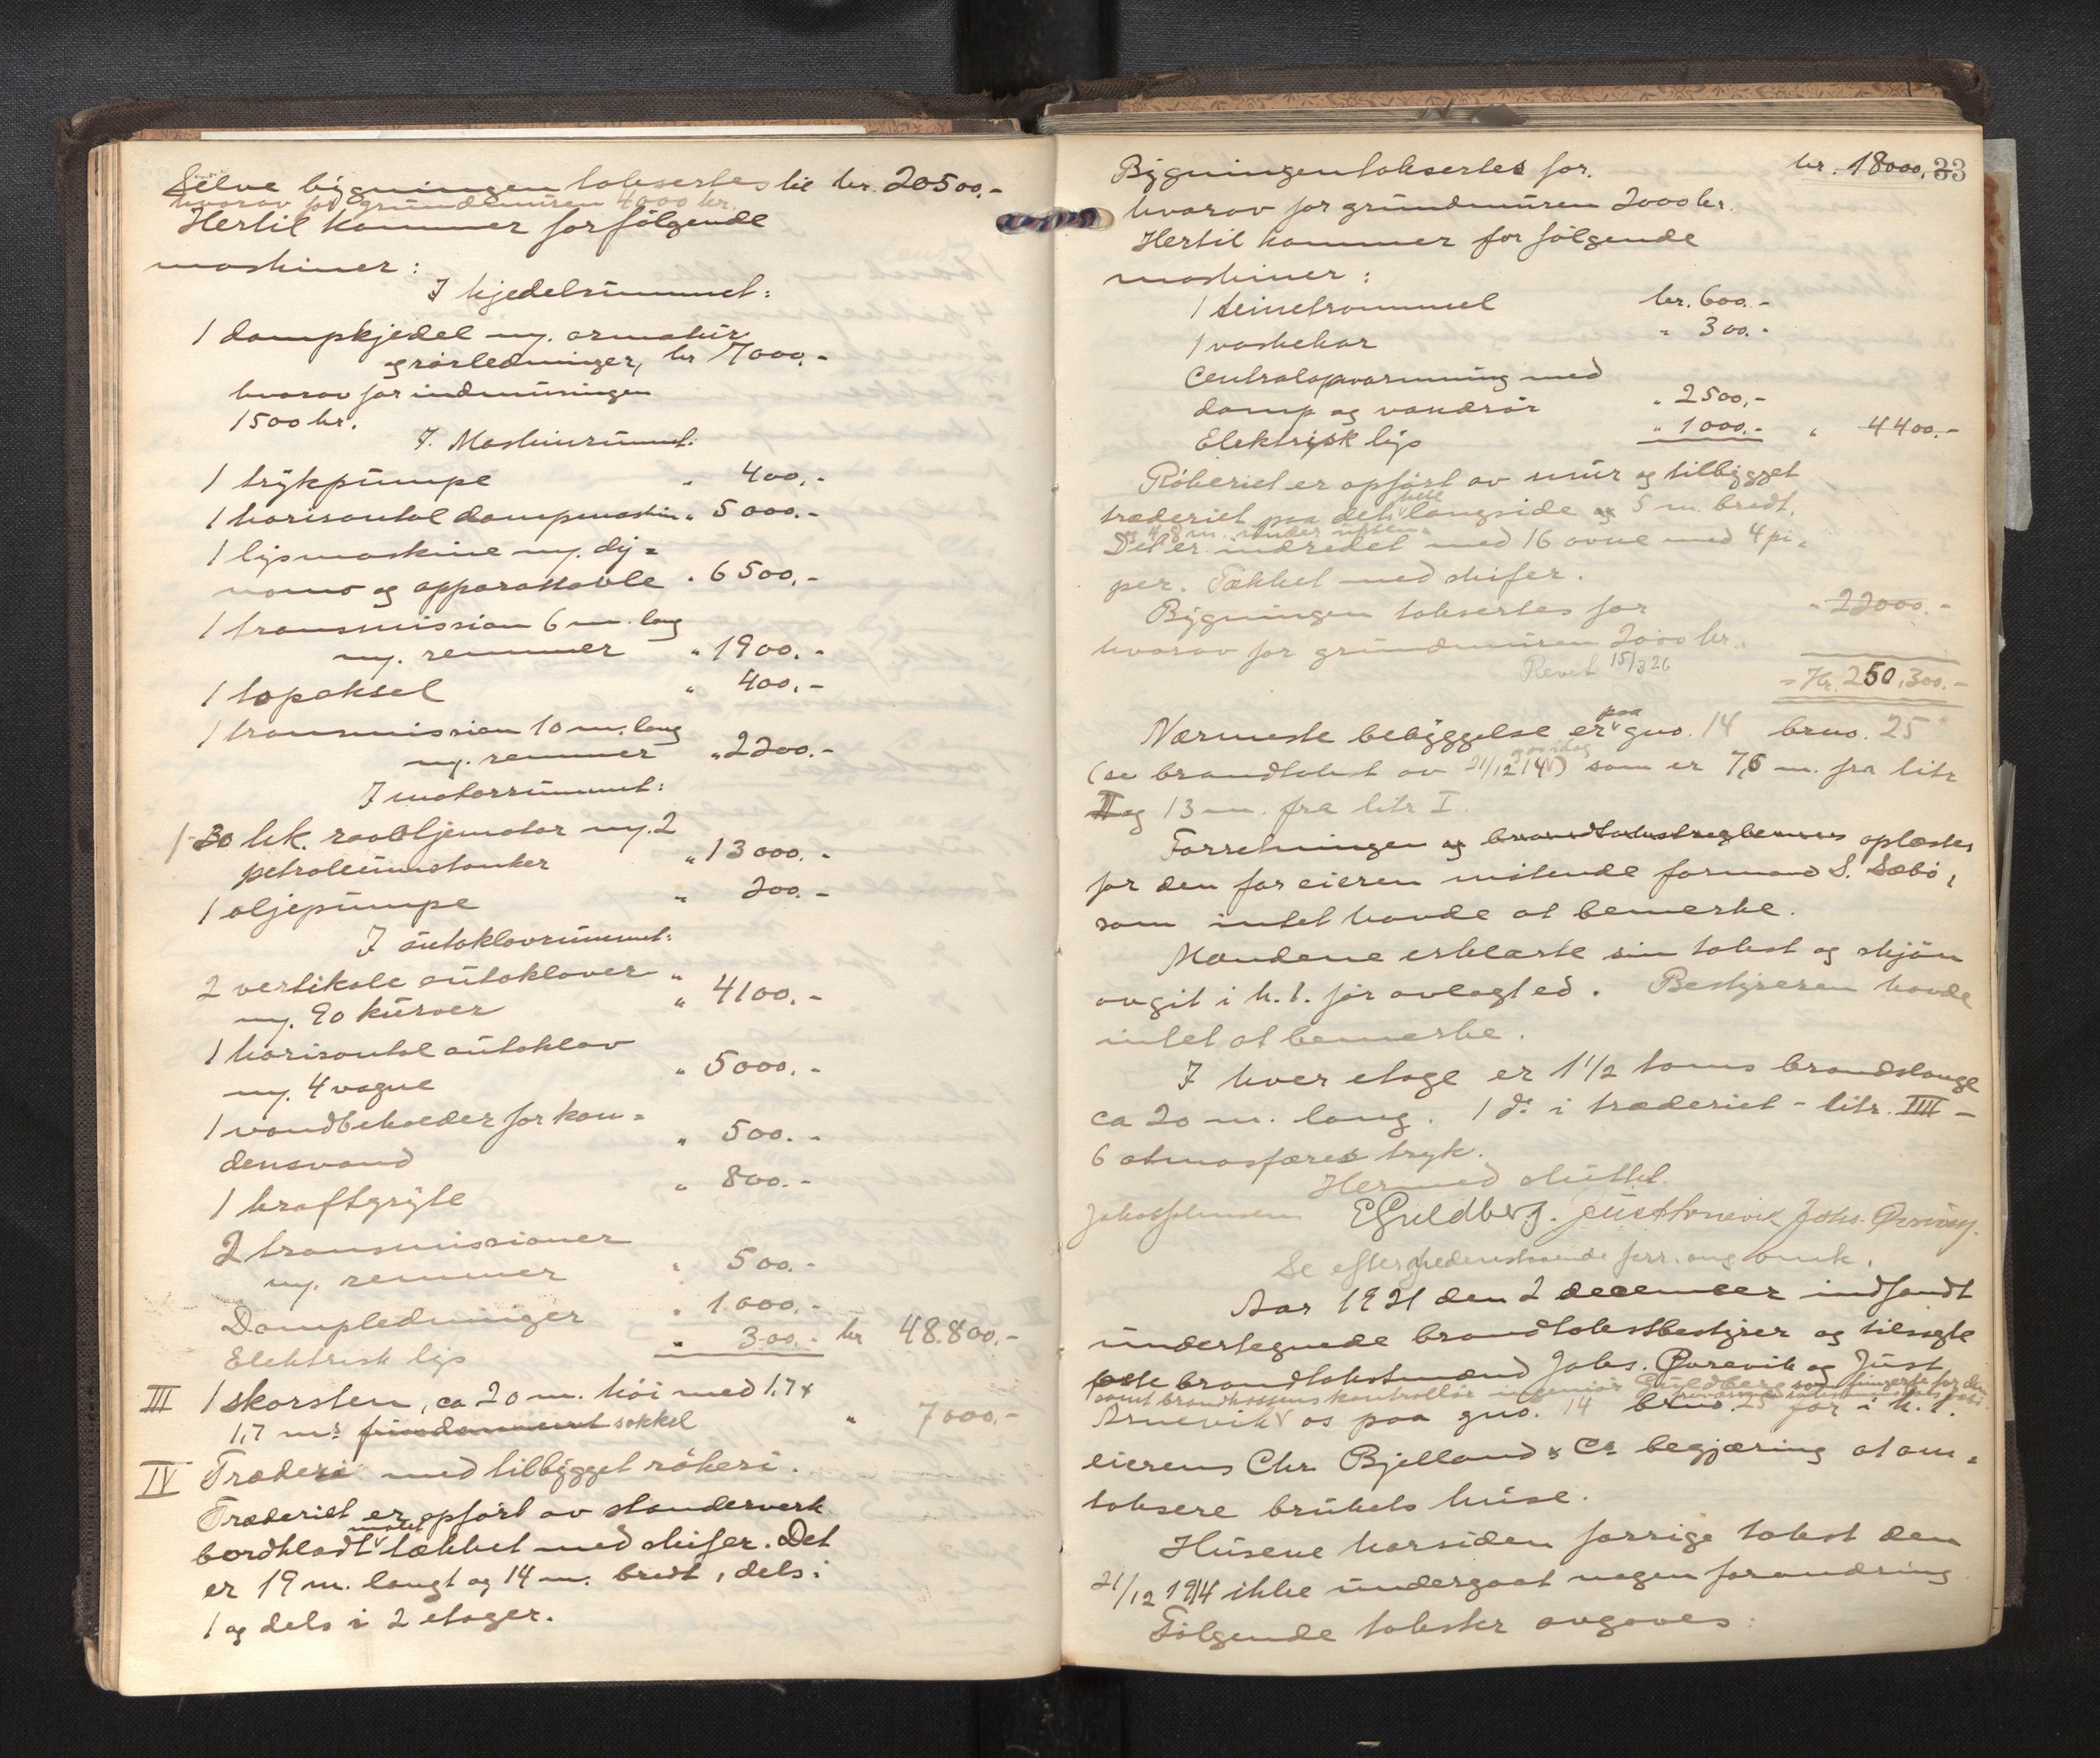 Selve bygningen takseres til kr. 20500.-
hvorav for grundmuren 4000 kr.
Hertil kommer for følgende
maskiner:
I kjedelrummet:
1 dampkjedel m/. armatur
og rørledninger, kr 7000.-
hvorav for indmuringen
1500 kr.
I. Maskinrummet:
1 trykpumpe " 400.-
1 horisontal dampmaskin " 5000.-
1 lysmaskine m/. dy-
namo og apparattavle " 6500.-
1 transmission 6 m. lang
m/. remmer " 1900.-
1 topaksel " 400.-
1 transmission 10 m. lang
m/. remmer " 2200.-
I motorrummet:
1-30 hk. raaoljemotor m/. 2
petroleumstanker " 13000.-
1 oljepumpe " 200.-
I autoklavrummet:
2 vertikale autoklaver "
m/. 90 kurver " 4100.-
1 horisontal autoklav
m/. 4 vogne " 5000.-
1 vandbeholder for kon-
densvand " 500.-
1 kraftgryte " 800.-
2 transmissioner
m/. remmer " 500.-
Dampledninger " 1000.-
Elektrisk lys " 300.- kr 48.800.-
III 1 skorsten, ca 20 m. høi med 1,7 x
1,7 m. fundament sokkel " 7000.-
IV Træderi med tilbygget røkeri.
Træderiet er opført av standerverk
bordklædt malet tækket med skifer. Det
er 19 m. langt og 14 m. bredt, dels i
1 og dels i 2 etager.
33
Bygningen takseres for. kr. 18000.-
hvorav for grundmuren 2000 kr.
Hertil kommer for følgende
maskiner:
1 seinetrommel kr. 600.-
1 vaskekar " 300.-
Centralopvarmning med
damp og vandrør " 2500.-
Elektrisk lys " 1000.- " 4400.-
Røkeriet er opført av mur og tilbygget
træderiet paa dets hele langside og 5 m. bredt.
Det er indredet med 16 ovne med 4 pi-
per. Tækket med skifer.
Bygningen takseres for " 22000.-
hvorav for grundmuren 2000 kr.
Revet 15/3 26
= Kr. 250,300.-
Nærmeste bebyggelse er paa gno. 14 brno. 25
(se brandtakst av 21/12 14) som er 7,5 m. fra litr
II og 13 m. fra litr I.
Forretningen og brandtakstreglementet oplæstes
for den for eieren møtende formand S. Sæbø,
som intet havde at bemerke.
Mændene erklærte sin takst og skjøn
avgit i h. t. før avlagt ed. Bestyreren havde
intet at bemerke.
I hver etage er 1 1/2 toms brandslange
ca 20 m. lang. 1 do i træderiet - litr. IIII -
6 atmosfærers tryk.
Hermed sluttet.
E Guldberg. Just Arnevik Johs.
Se efter nedenstaaende forr. ang omk.
Aar 1921 den 2 december indfandt
undertegnede brandtakstbestyrer og tilsagte
faste brandtakstmænd Johs. Qvrevik og Just
samt brandkassens kontrollør ingeniør Guldberg som fungerte for den
Arnevik os paa gno. 14 brno. 25 for i h. t.
eierens Chr. Bjelland & Co begjæring at om-
taksere brukets huse.
Husene har siden forrige takst den
21/12 1914 ikke undergaat nogen forandring
Følgende takster avgaves: